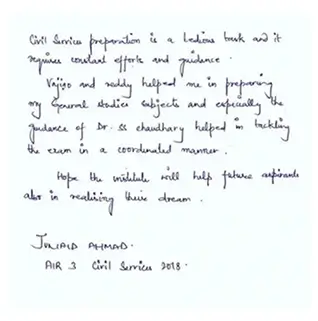 Civil Services preparation is a tedious task and it
requires constant efforts and guidance.
Vajiro and reddy helped me in preparing
my General studies subjects and especially the
guidance of Dr. SS chaudhary helped in tackling
the exam in a coordinated manner.
Hope the institute will help future aspirants
also in realising their dream.
JUNAID AHMAD.
AIR 3 Civil Services 2018.